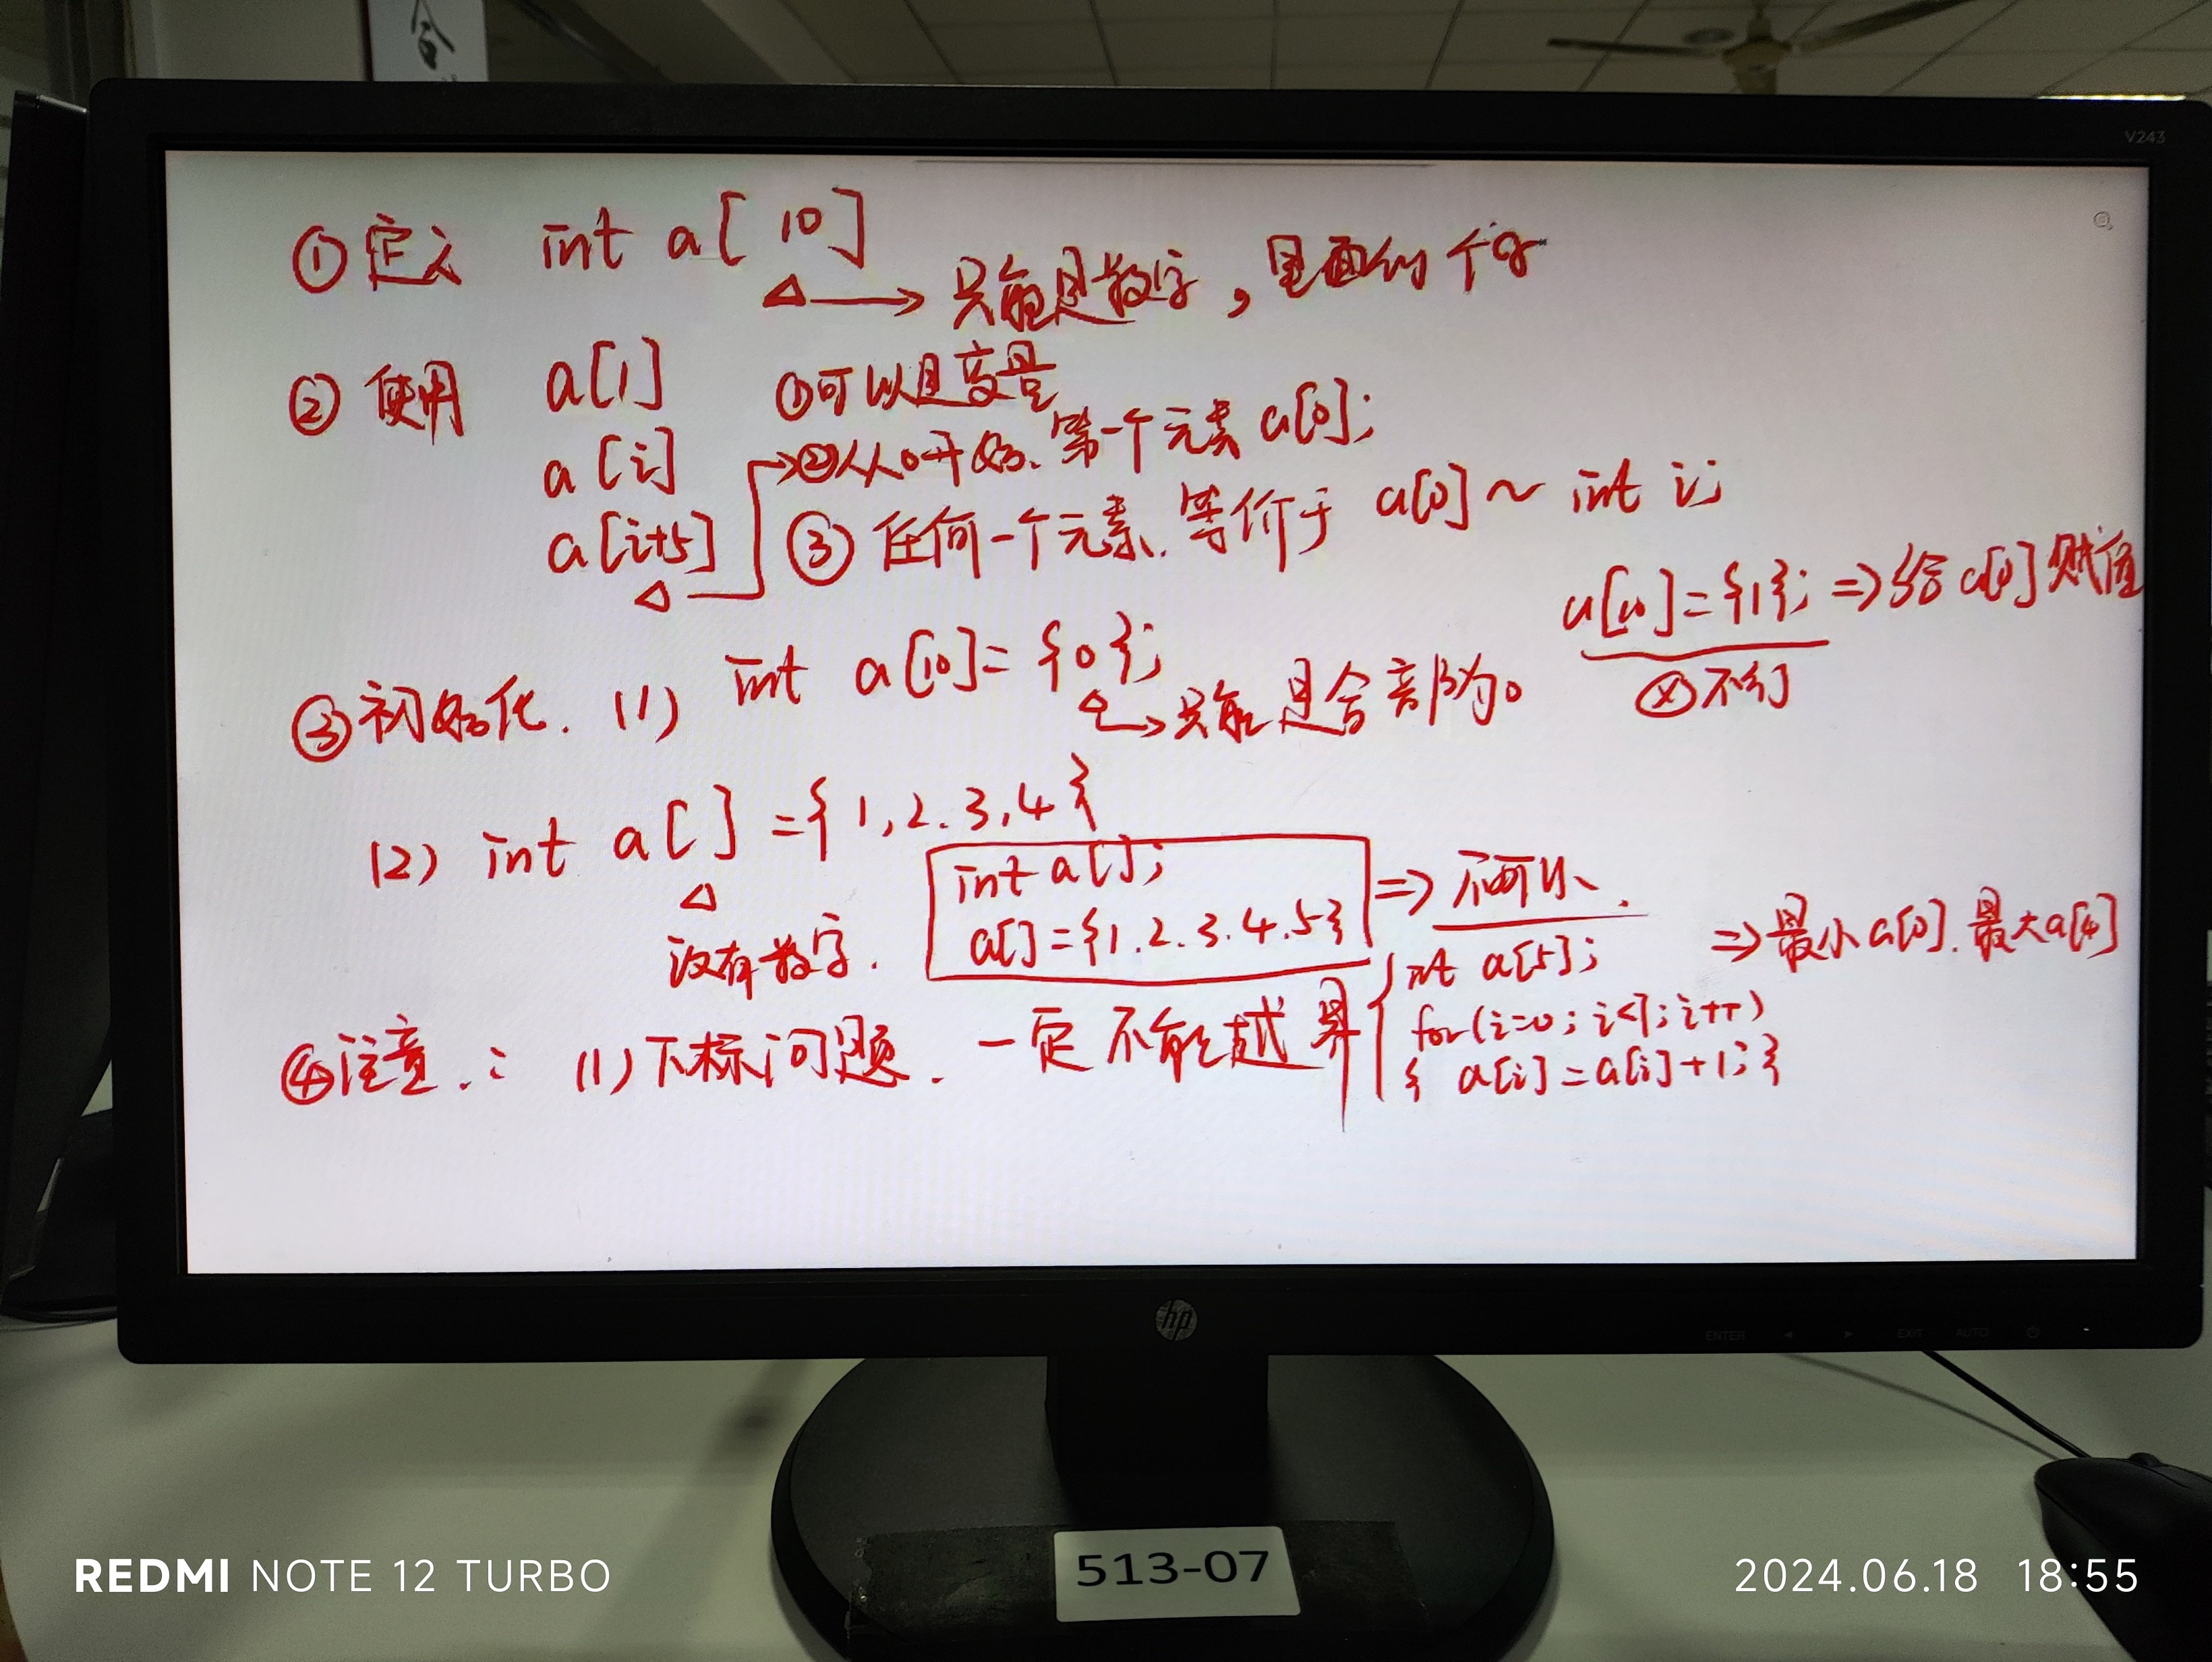 V243
① 定义 int a[10]
△→只能是数字,里面的个数
② 使用 a[1] ①可以是变量
a[i] →②从0开始、第一个元素 a[0];
a[i+5] ③ 任何一个元素、等价于 a[0] ~ int i;
△
a[10]={1}; ⇒ 给a[0]赋值
ⓧ不行
③初始化. (1) int a[10]={0};
只能是全部为0
(2) int a[] ={1,2.3,4}
△
没有数字.
int a[];
a[]={1.2.3.4.5}
⇒ 不可以、
④注意.: (1)下标问题. 一定不能越界
int a[5]; ⇒最小a[0].最大a[4]
for(i=0; i<7; i++)
{ a[i]=a[i]+1; }
hp
ENTER EXIT AUTO
513-07
REDMI NOTE 12 TURBO
2024.06.18 18:55